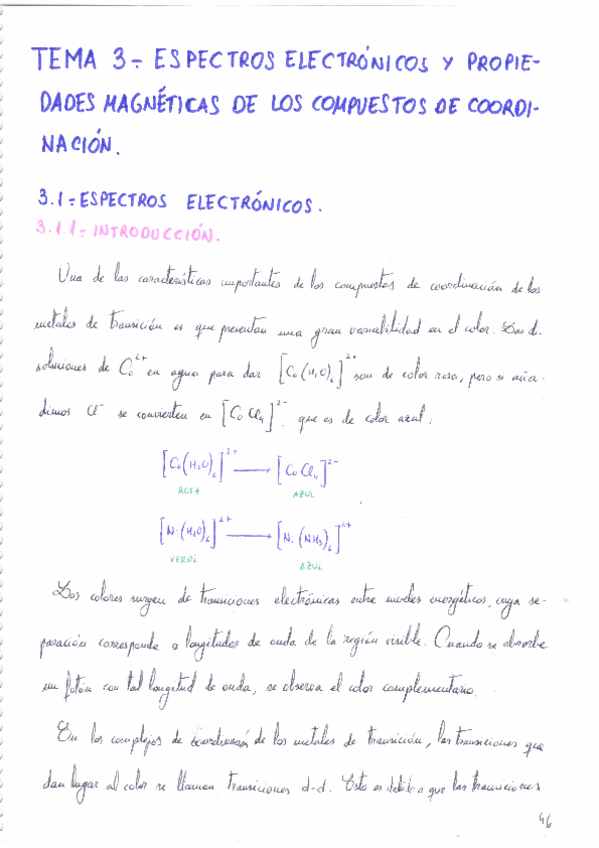 TEMA 3.- ESPECTROS ELECTRÓNICOS Y PROPIE-
DADES MAGNÉTICAS DE LOS COMPUESTOS DE COORDI-
NACIÓN.
3.1.- ESPECTROS ELECTRÓNICOS.
3.1.1.- INTRODUCCIÓN.
Una de las características importantes de los compuestos de coordinación de los
metales de transición es que presentan una gran variabilidad en el color. Las di-
soluciones de Co²⁺ en agua para dar [Co(H₂O)₆]²⁺ son de color rosa, pero si aña-
dimos Cl⁻ se convierten en [CoCl₄]²⁻ que es de color azul:
[Co(H₂O)₆]²⁺ ⟶ [CoCl₄]²⁻
ROSA AZUL
[Ni(H₂O)₆]²⁺ ⟶ [Ni(NH₃)₆]²⁺
VERDE AZUL
Los colores surgen de transiciones electrónicas entre niveles energéticos, cuya se-
paración corresponde a longitudes de onda de la región visible. Cuando se absorbe
un fotón con tal longitud de onda, se observa el color complementario.
En los complejos de coordinación de los metales de transición, las transiciones que
dan lugar al color se llaman transiciones d-d. Esto es debido a que las transiciones
46